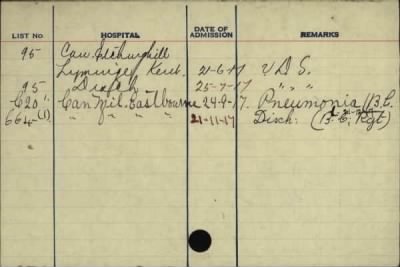 LIST No HOSPITAL DATE OF ADMISSION REMARKS
95 Can. Etchinghill
Lyminge, Kent. 21-6-17 V.D.S.
95 Disch 25-7-17 " " "
C20 Can. Mil. Eastbourne 24-9-17. Pneumonia (B.C.
664(1) " " " 21-11-17 Disch: (B.C. Rgt)